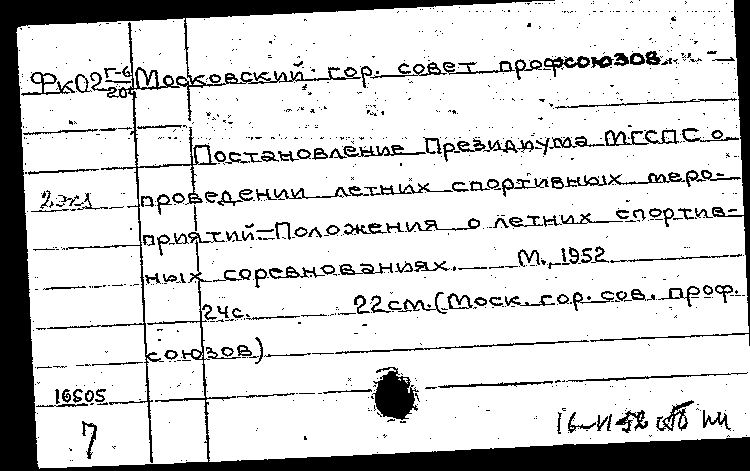 ФкО2 Г-6/204 Московский гор. совет профсоюзов
Постановление Президиума МГСПС о
2 экз проведении летних спортивных меро-
приятий-Положения о летних спортив-
ных соревнованиях. М., 1952
24с. 22см. (Моск. гор. сов. проф.
союзов)
16605
7
16-11 52